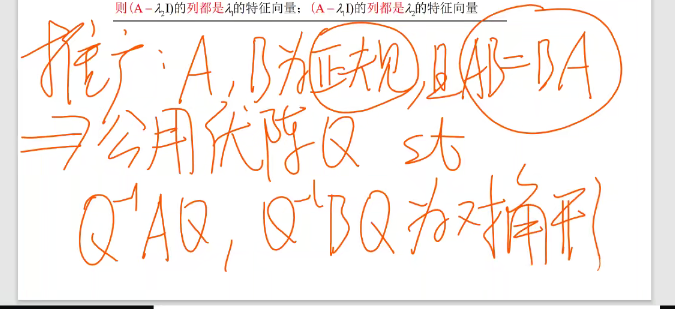 则(A-λ₂I)的列都是λ₁的特征向量；(A-λ₁I)的列都是λ₂的特征向量
推广：A，B为正规，且AB=BA
⇒公用优阵Q st
Q⁻¹AQ，Q⁻¹BQ为对角形